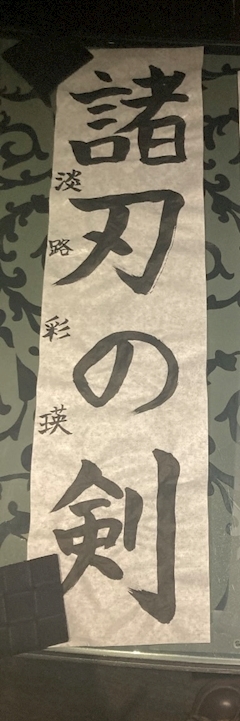 諸刃の剣
淡路彩瑛